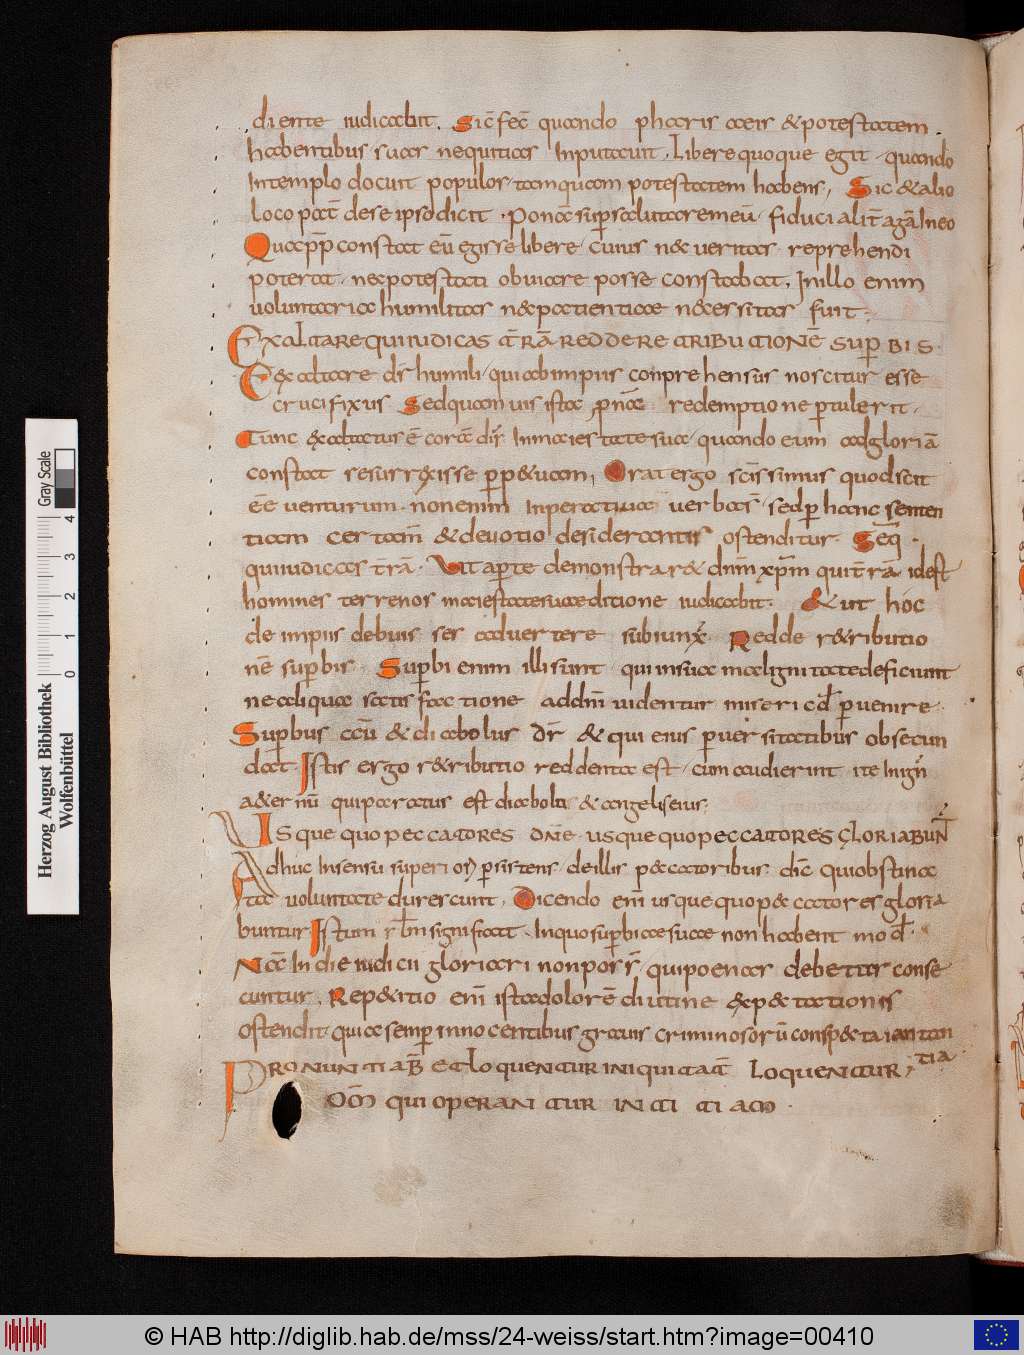 diente iudicabit. Sic̄ fec̄ quando pharisaeis & potestatem
habentibus suas nequitias inputauit. Libere quoque egit quando
in templo docuit populos tamquam potestatem habens, Sic & alio
loco pat̄ de se ipso dicit. Ponā sup̄ salutare meū fiducialit̄ agā in eo
Quapp̄ constat eū egisse libere cuius nec ueritas reprehendi
poterat nec potestati obuiare posse constabat, In illo enim
uoluntaria humilitas n& patientiae n&cessitas fuit.
EXALTARE QUI IUDICAS T̄RĀ REDDERE TRIBUTIONĒ SUPERBIS.
Exaltare dr̄ humili qui ab impiis conprehensus noscitur esse
crucifixus Sed quamuis ista p nā redemptione ptulerit.
Tunc exaltatus ē corā dr̄ In maiestate sua quando eum ad gloriā
constat resurrexisse pp&uam, Orat ergo scīssimus quod scit
eē uenturum. non enim Inperatiua uerba s̄ sed p hanc senten
tiam certam & deuotio desiderantis ostenditur. Seq̄.
qui iudicas t̄rā. Ut apte demonstrar& dn̄m xp̄m qui t̄rā id est
homines terrenos maiestate suae ditione iudicabit. & ut hoc
de impiis debuisset aduertere subiunx̄. Redde r&ributio
nē supbis. Supbi enim illi sunt qui in sua malignitate deficiunt
ne aliqua satisfactione ad dn̄i uidentur misericd̄ puenire.
Supbus eū & diabolus dr̄ & qui eius puersitatibus obsecun
dat. Istis ergo r&ributio reddenda est cum audierint ite In ign̄
a&ernū qui paratus est diabolo & angelis eius.
USQUE QUO PECCATORES DN̄E USQUE QUO PECCATORES GLORIABUN̄T
Adhuc In sensu superiori psistens de illis peccatoribus dic̄ qui obstina
ta uoluntate durescunt. Dicendo enī usque quo peccatores gloria
buntur Istum significat. In quo supbiae suae non habent mod̄
Nā In die iudicii gloriari non poss̄ qui poenas debetur conse
cuntur. Rep&itio enī ista dolorē diutine exp&tationis
ostendit. quia semp innocentibus grauis criminosorū conspecta iantan
tia
PRONUNTIAB̄ & LOQUENTUR INIQUITAT̄ LOQUENTUR,
OM̄S QUI OPERANTUR INIUSTITIAM.
Gray Scale
0 1 2 3 4
Herzog August Bibliothek
Wolfenbüttel
© HAB http://diglib.hab.de/mss/24-weiss/start.htm?image=00410